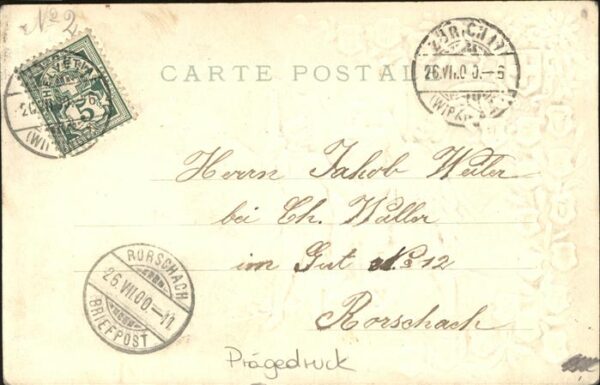 No 2
HELVETIA
5
CARTE POSTALE
ZÜRICH 17
26.VII.00.-6
(WIPK.)
Herrn Jakob Weiler
bei Ch. Waller
im Gut No 12
Rorschach
RORSCHACH
26.VII.00.-11
BRIEFPOST
Prägedruck